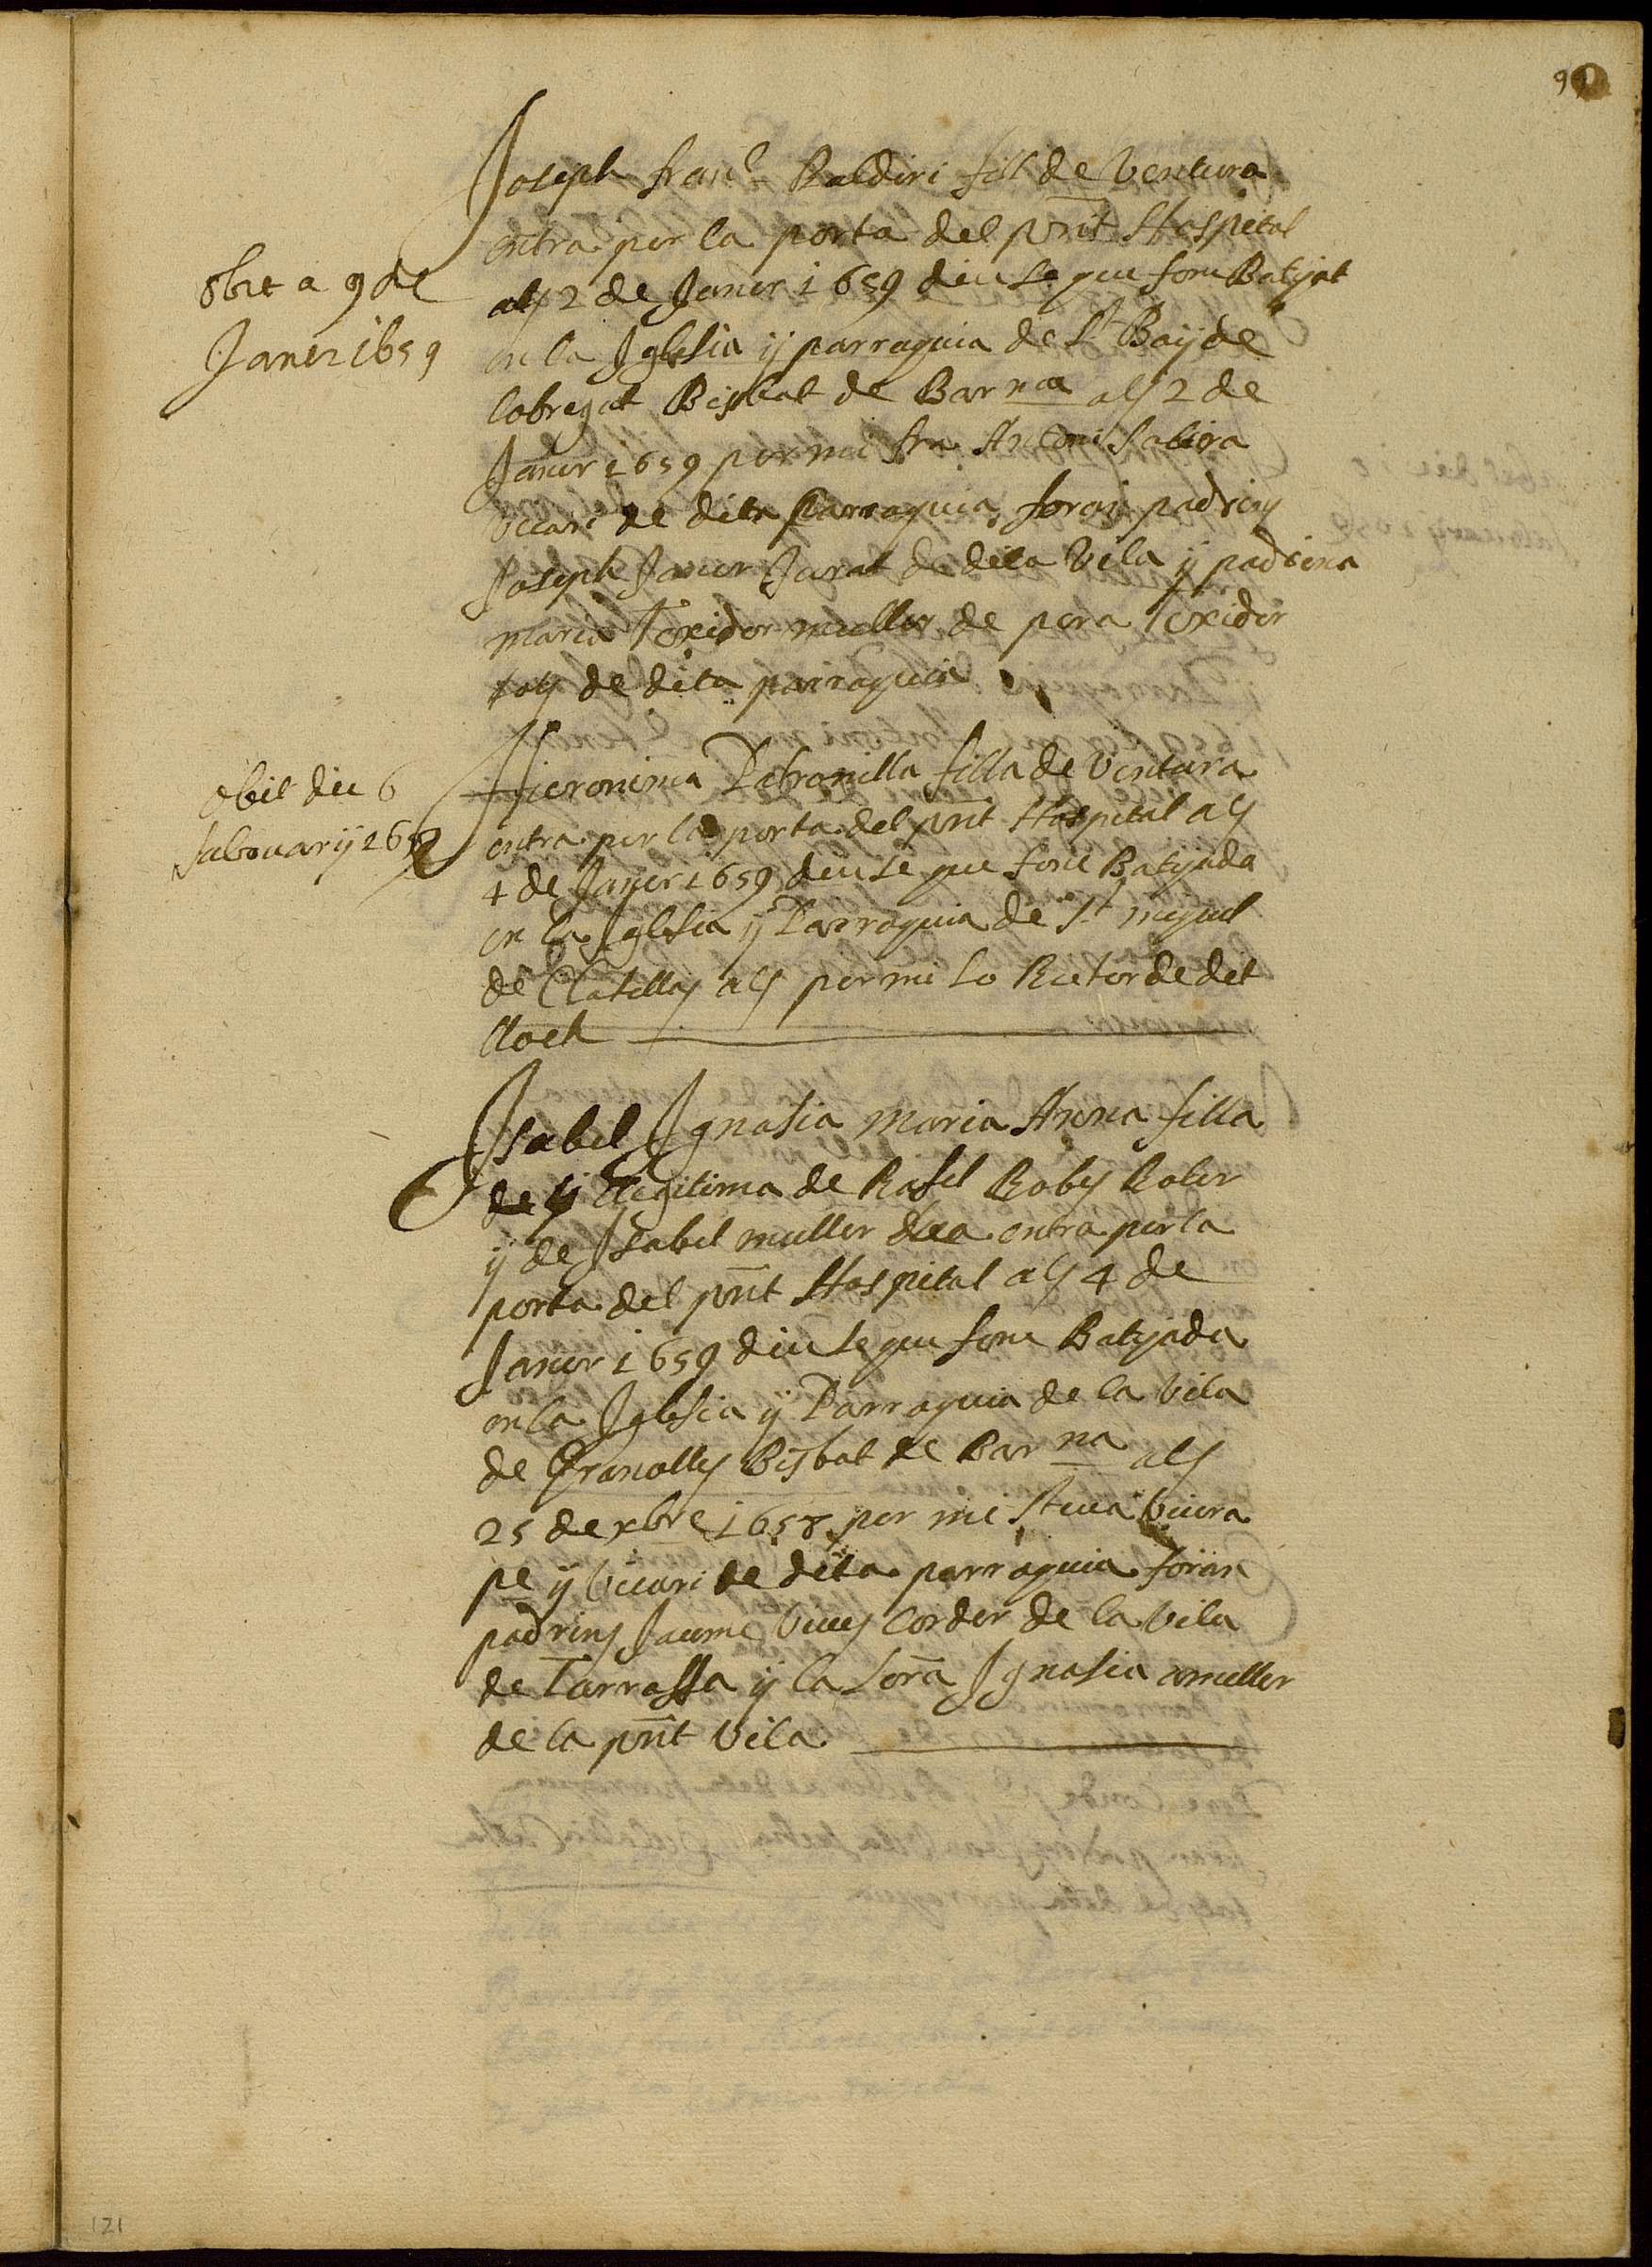 Joseph fran.ch Baldiri fill de Ventura
entra per la porta del pnt Hospital
als 2 de Janer 1659 diu se que fonc Batejat
en la Iglesia ÿ parraquia de St Boÿ de
lobregat Bisbat de Barna als 2 de
Janer 1659 per mi fra Antoni
vicari de dita Parraquia foren padrins
Joseph Janer Jurat de dita Vila ÿ padrina
maria Texidor muller de pera Texidor
tots de dita parraquia
obit a 9 de
Janer 1659
Hieronima Petronilla filla de Ventura
entra per la porta del pnt Hospital als
4 de Janer 1659 diu se que fonc Batejada
en la Iglesia ÿ Parraquia de St miquel
de als per mi lo Rector de dit
lloch
obit die 6
1659
Isabel Ignasia Maria Anna filla
de ll ÿ llegitima de Rafel
ÿ de Isabel muller dua entra per la
porta del pnt Hospital als 4 de
Janer 1659 diu se que fonc Batejada
en la Iglesia ÿ Parraquia de la Vila
de Granollés Bisbat de Barna als
25 de xbre 1658 per mi Steva
pe ÿ Vicari de dita parraquia foran
padrins Jaume Vives Corder de la Vila
de Tarrassa ÿ la Sora Ignasia muller
de la pnt Vila
121